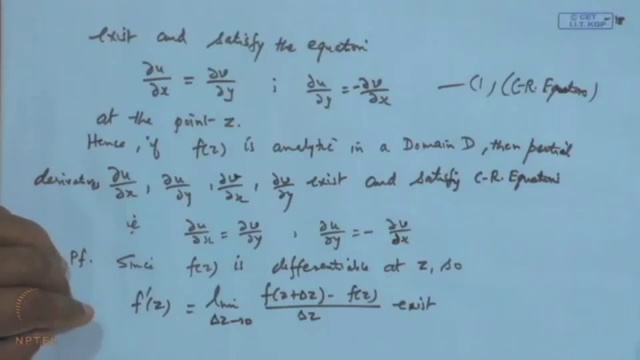 © CET
I.I.T. KGP
exist and satisfy the equation
∂u/∂x = ∂v/∂y ; ∂u/∂y = -∂v/∂x — (1) (C-R. Equations)
at the point z.
Hence, if f(z) is analytic in a Domain D, then partial
derivatives ∂u/∂x, ∂u/∂y, ∂v/∂x, ∂v/∂y exist and satisfy C-R. Equations
ie ∂u/∂x = ∂v/∂y , ∂u/∂y = - ∂v/∂x
Pf. Since f(z) is differentiable at z, so
f'(z) = lim Δz→0 f(z+Δz) - f(z) / Δz exist
NPTEL